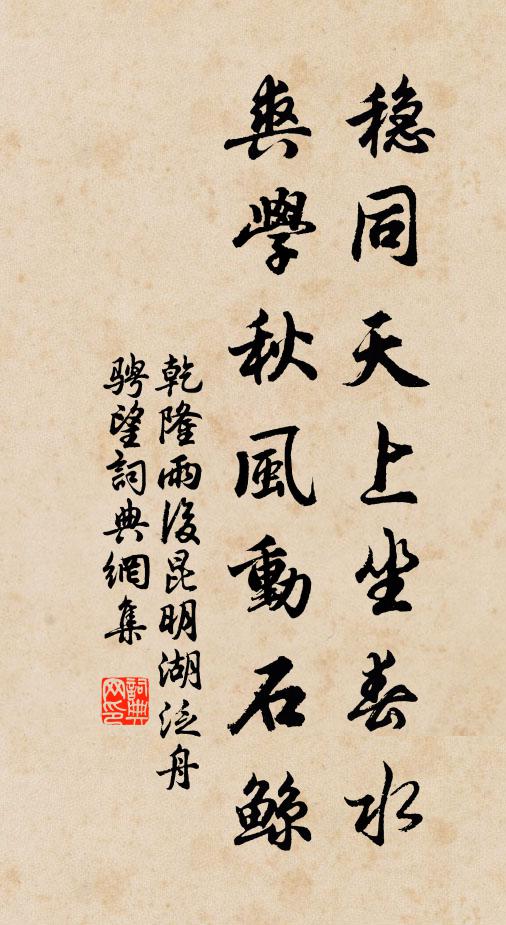 稳同天上坐春水
爽學秋風動石鯨
乾隆雨後昆明湖泛舟
騁望詞典網集
詞典网印